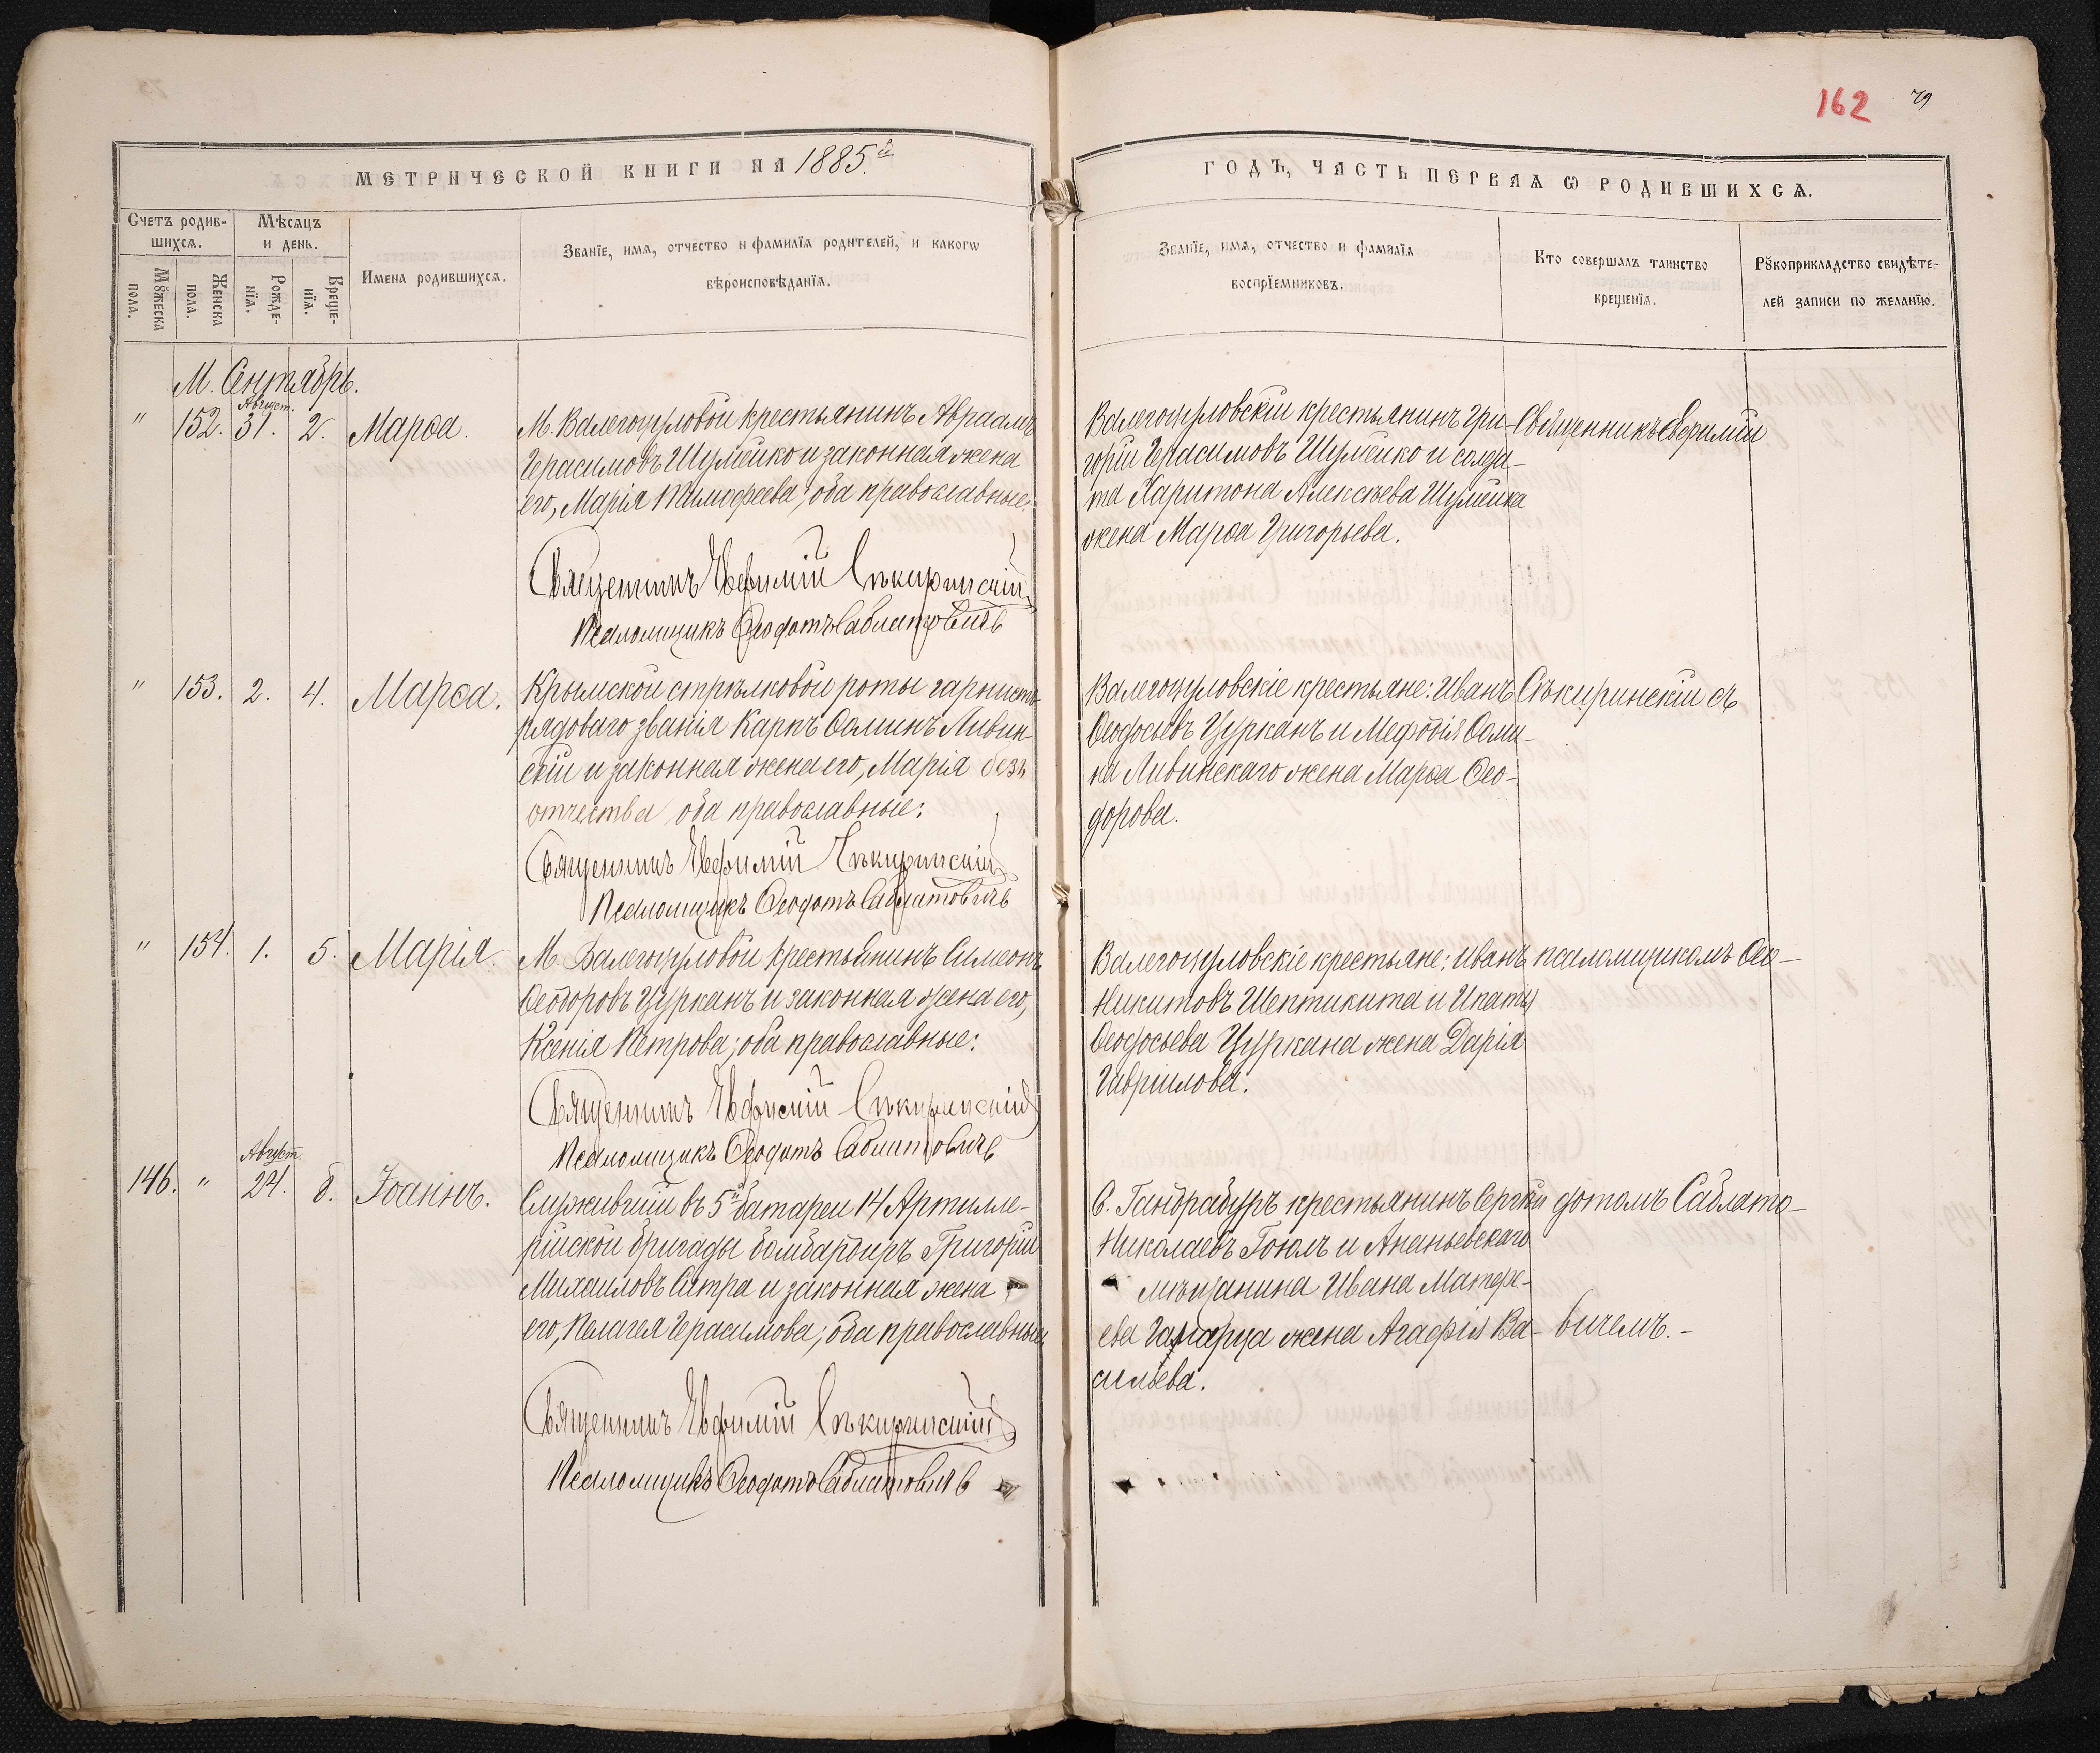 162 79
МЕТРИЧЕСКОЙ КНИГИ НА 1885 й
ГОДЪ, ЧАСТЬ ПЕРВАЯ Ѡ РОДИВШИХСѦ.
Счетъ родив-
шихсѧ.
Мѣсѧцъ
и день.
Мꙋжеска
пола.
Женска
пола.
Рожде-
нїѧ.
Креще-
нїѧ.
Имена родившихсѧ.
Званїе, имѧ, отчество и фамилїѧ родителей, и какогѡ
вѣроисповѣданїѧ.
Званїе, имѧ, отчество и фамилїѧ
воспрїемниковъ.
Кто совершалъ таинство
крещенїѧ.
Рꙋкоприкладство свидѣте-
лей записи по желанїю.
М. Сентябрь.
" 152. Август. 31. 2. Марѳа.
М. Валегоцуловой крестьянинъ Авраамъ
Герасимовъ Шумейко и законная жена
его, Марія Тимофеева; оба православные:
Священникъ Евфимій Сѣкиринскій
Псаломщикъ Ѳеодотъ Саблатовичъ
Валегоцуловскій крестьянинъ Гри-
горій Герасимовъ Шумейко и солда-
та Харитона Алексѣева Шумейка
жена Марѳа Григорьева.
Священникъ Ефимій
" 153. 2. 4. Марѳа.
Крымской стрѣлковой роты горнистъ
рядоваго званія Карпъ Ѳоминъ Ливин-
скій и законная жена его, Марія безъ
отчества оба православные:
Священникъ Евфимій Сѣкиринскій
Псаломщикъ Ѳеодотъ Саблатовичъ
Валегоцуловскіе крестьяне: Иванъ
Ѳеодосьевъ Цурканъ и Мефодія Ѳоми-
на Ливинскаго жена Марѳа Ѳео-
дорова.
Сѣкиринскій съ
" 154. 1. 5. Марія.
М. Валегоцуловой крестьянинъ Симеонъ
Ѳеодоровъ Цурканъ и законная жена его,
Ксенія Петрова; оба православные:
Священникъ Евфимій Сѣкиринскій
Псаломщикъ Ѳеодотъ Саблатовичъ
Валегоцуловскіе крестьяне: Иванъ
Никитовъ Шептикита и Ипатія
Ѳеодосьева Цуркана жена Дарія
Гавріилова.
псаломщикомъ Ѳео-
146. " Август. 24. 8. Іоаннъ.
Служившій въ 5й батареи 14 Артилле-
рійской бригады бомбардиръ Григорій
Михаиловъ Сатра и законная жена
его, Пелагея Герасимова; оба православные
Священникъ Евфимій Сѣкиринскій
Псаломщикъ Ѳеодотъ Саблатовичъ
С. Гандрабуръ крестьянинъ Сергѣй
Николаевъ Гоюлъ и Ананьевскаго
мѣщанина Ивана Матфе-
ева жена Агафія Ва-
сильева.
дотомъ Саблато-
вичемъ. -